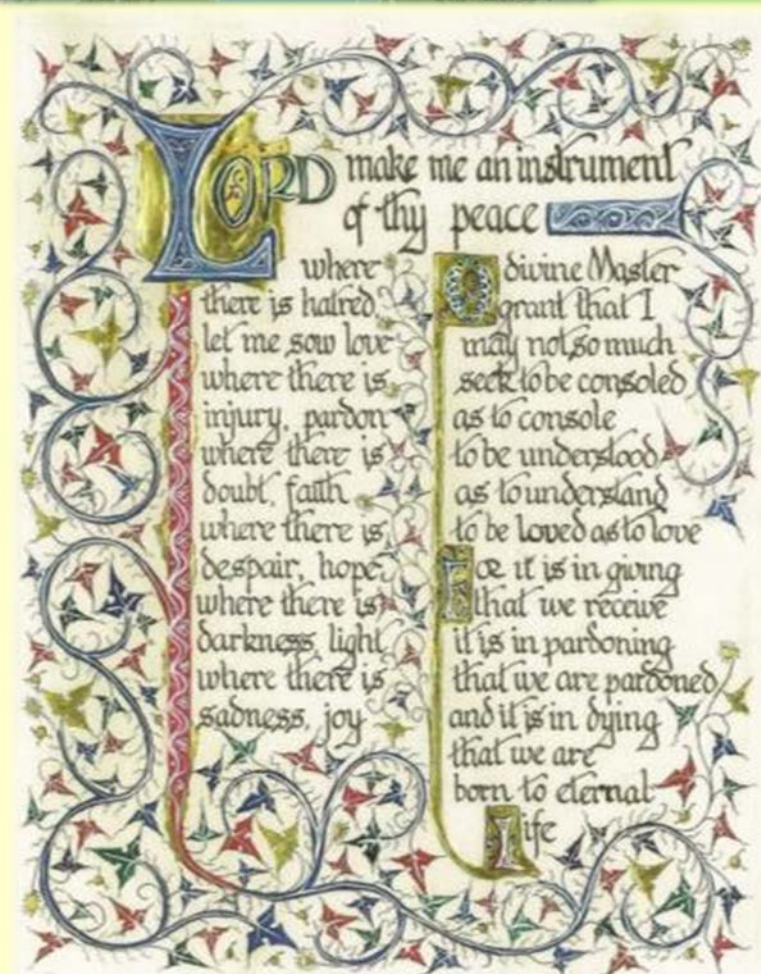 LORD make me an instrument
of thy peace
where
there is hatred,
let me sow love
where there is
injury, pardon
where there is
doubt, faith
where there is
despair, hope,
where there is
darkness, light
where there is
sadness, joy
O divine Master
grant that I
may not so much
seek to be consoled
as to console
to be understood
as to understand
to be loved as to love
For it is in giving
that we receive
it is in pardoning
that we are pardoned
and it is in dying
that we are
born to eternal
life